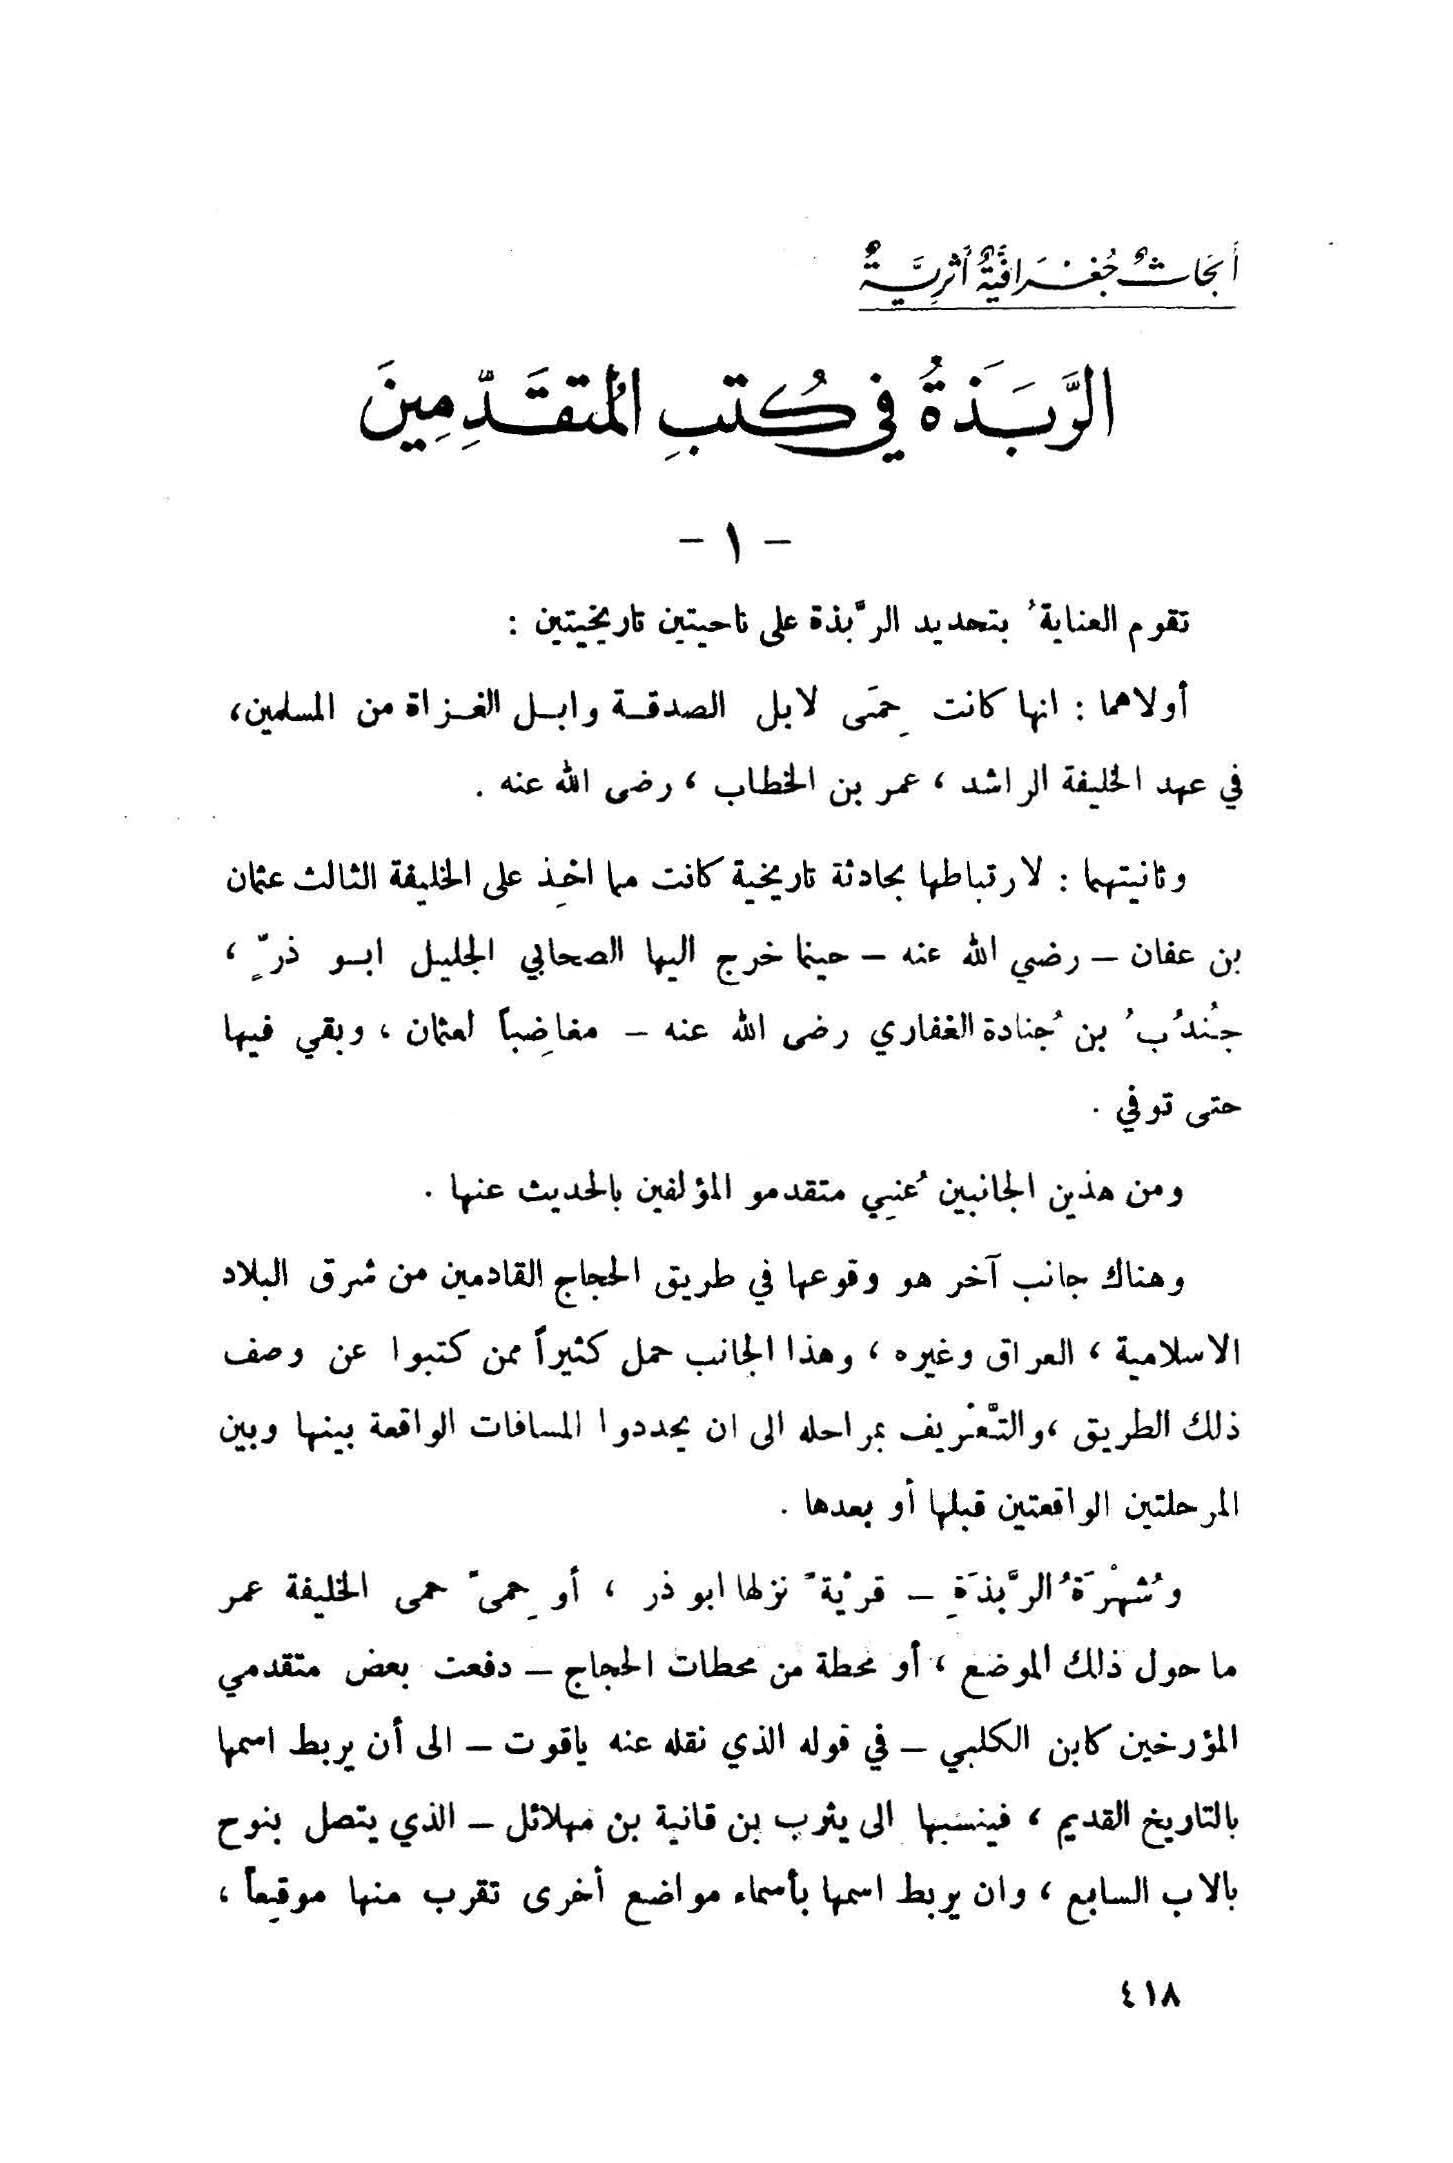 أبحاثٌ جُغرَافيَّةٌ أثريَّةٌ
الرَّبَذَةُ في كُتبِ المُتقَدِّمِينَ
- ١ -
تقوم العنايةُ بتحديد الرَّبذة على ناحيتين تاريخيتين :
أولاهما : انها كانت حِمَى لابل الصدقة وابل الغزاة من المسلمين،
في عهد الخليفة الراشد ، عمر بن الخطاب ، رضى الله عنه .
وثانيتهما : لارتباطها بحادثة تاريخية كانت مما اخِذ على الخليفة الثالث عثمان
بن عفان – رضي الله عنه – حينما خرج اليها الصحابي الجليل ابو ذرٍّ ،
جُندُبُ بن جُنادة الغفاري رضى الله عنه – مغاضِباً لعثمان ، وبقي فيها
حتى توفي .
ومن هذين الجانبين عُنِي متقدمو المؤلفين بالحديث عنها .
وهناك جانب آخر هو وقوعها في طريق الحجاج القادمين من شرق البلاد
الاسلامية ، العراق وغيره ، وهذا الجانب حمل كثيراً ممن كتبوا عن وصف
ذلك الطريق ، والتَّعْريف بمراحله الى ان يحددوا المسافات الواقعة بينها وبين
المرحلتين الواقعتين قبلها أو بعدها .
وشُهْرَةُ الرَّبذَةِ – قرْيةً نزلها ابو ذر ، أو حِمىً حمى الخليفة عمر
ما حول ذلك الموضع ، أو محطة من محطات الحجاج – دفعت بعض متقدمي
المؤرخين كابن الكلبي – في قوله الذي نقله عنه ياقوت – الى أن يربط اسمها
بالتاريخ القديم ، فينسبها الى يثرب بن قانية بن مهلائل – الذي يتصل بنوح
بالاب السابع ، وان يربط اسمها بأسماء مواضع أخرى تقرب منها موقِعاً ،
٤١٨